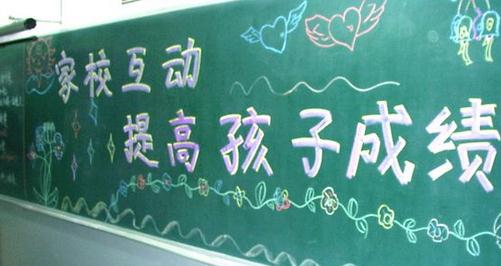 家校互动
提高孩子成绩